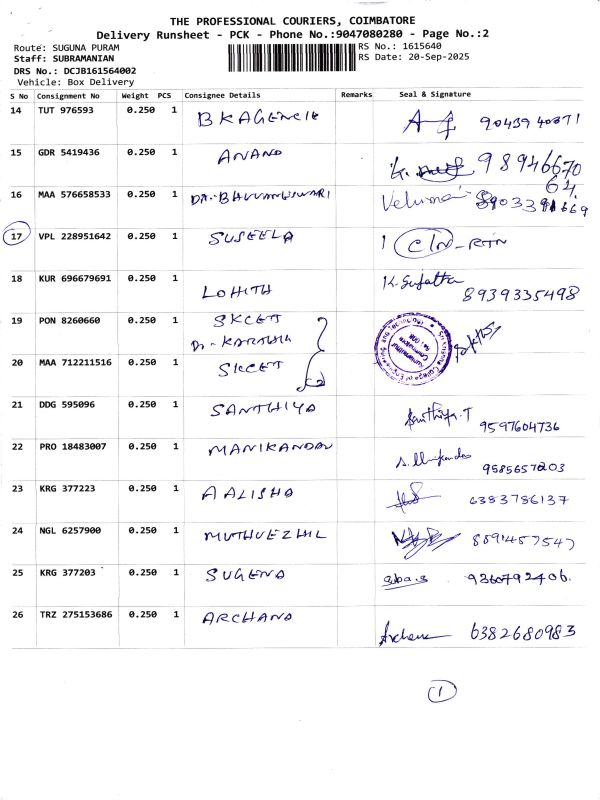 THE PROFESSIONAL COURIERS, COIMBATORE
Delivery Runsheet - PCK - Phone No.:9047080280 - Page No.:2
Route: SUGUNA PURAM
RS No.: 1615640
Staff: SUBRAMANIAN
RS Date: 20-Sep-2025
DRS No.: DCJB161564002
Vehicle: Box Delivery
S No Consignment No Weight PCS Consignee Details Remarks Seal & Signature
14 TUT 976593 0.250 1 BKAGENCIE
15 GDR 5419436 0.250 1 ANAND 9894667064
16 MAA 576658533 0.250 1 DR. BHUVANESWARI
17 VPL 228951642 0.250 1 SUSEELA
18 KUR 696679691 0.250 1 LOHITH K. Sujatha 8939335498
19 PON 8260660 0.250 1 SKCET
Dr. KARTHIK
20 MAA 712211516 0.250 1 SKCET
21 DDG 595096 0.250 1 SANTHIYA Santhiya.T 9597604736
22 PRO 18483007 0.250 1 MANIKANDAN 9585657203
23 KRG 377223 0.250 1 AALISHA 6383786137
24 NGL 6257900 0.250 1 MUTHUEZHIL 8891457547
25 KRG 377203 0.250 1 SUGENA 9360792406.
26 TRZ 275153686 0.250 1 ARCHANA Archana 6382680983
1